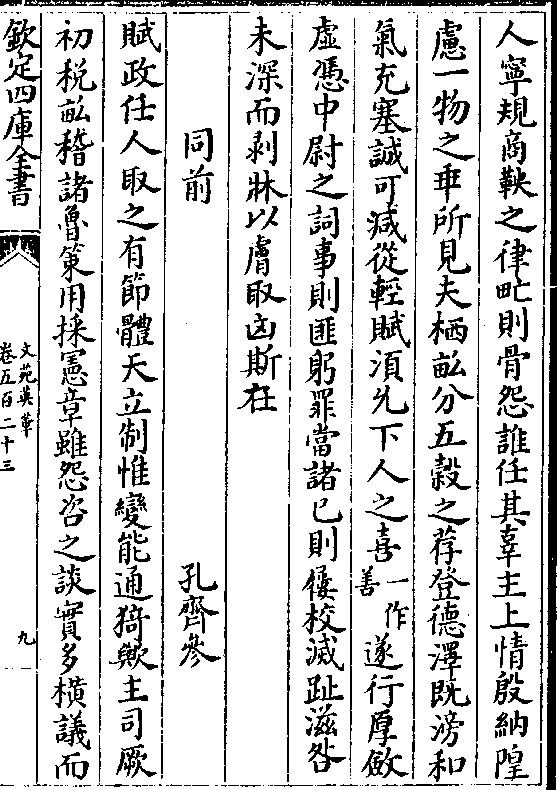 人寧規商鞅之律甿則骨怨誰任其辜主上情殷納隍
慮一物之乖所見夫栖畝分五穀之荐登德澤既滂和
氣充塞誠可減從輕賦須允下人之喜一作善遂行厚斂
虛憑中尉之詞事則匪躬罪當諸已則僂校滅趾滋咎
未深而剥牀以膚取凶斯在
同前 孔齊參
賦政任人取之有節體天立制惟變能通猗歟主司厥
初税畝稽諸魯策用採憲章雖怨咨之談實多橫議而
欽定四庫全書
文苑英華
卷五百二十三
九